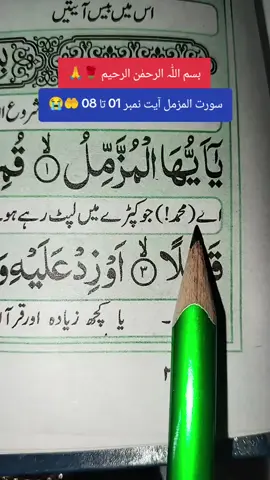 اس میں بیس آیتیں
بسم اللہ الرحمٰن الرحیم 🌹 🙏
شروع
سورت المزمل آیت نمبر 01 تا 08 🤲 😭
يٰٓاَيُّهَا الْمُزَّمِّلُ ۙ﴿۱﴾ قُمِ
اے (محمد!) جو کپڑے میں لپٹ رہے ہو۔
ۙ﴿۳﴾ اَوْ زِدْ عَلَيْهِ وَ
یا کچھ زیادہ اور قرآ